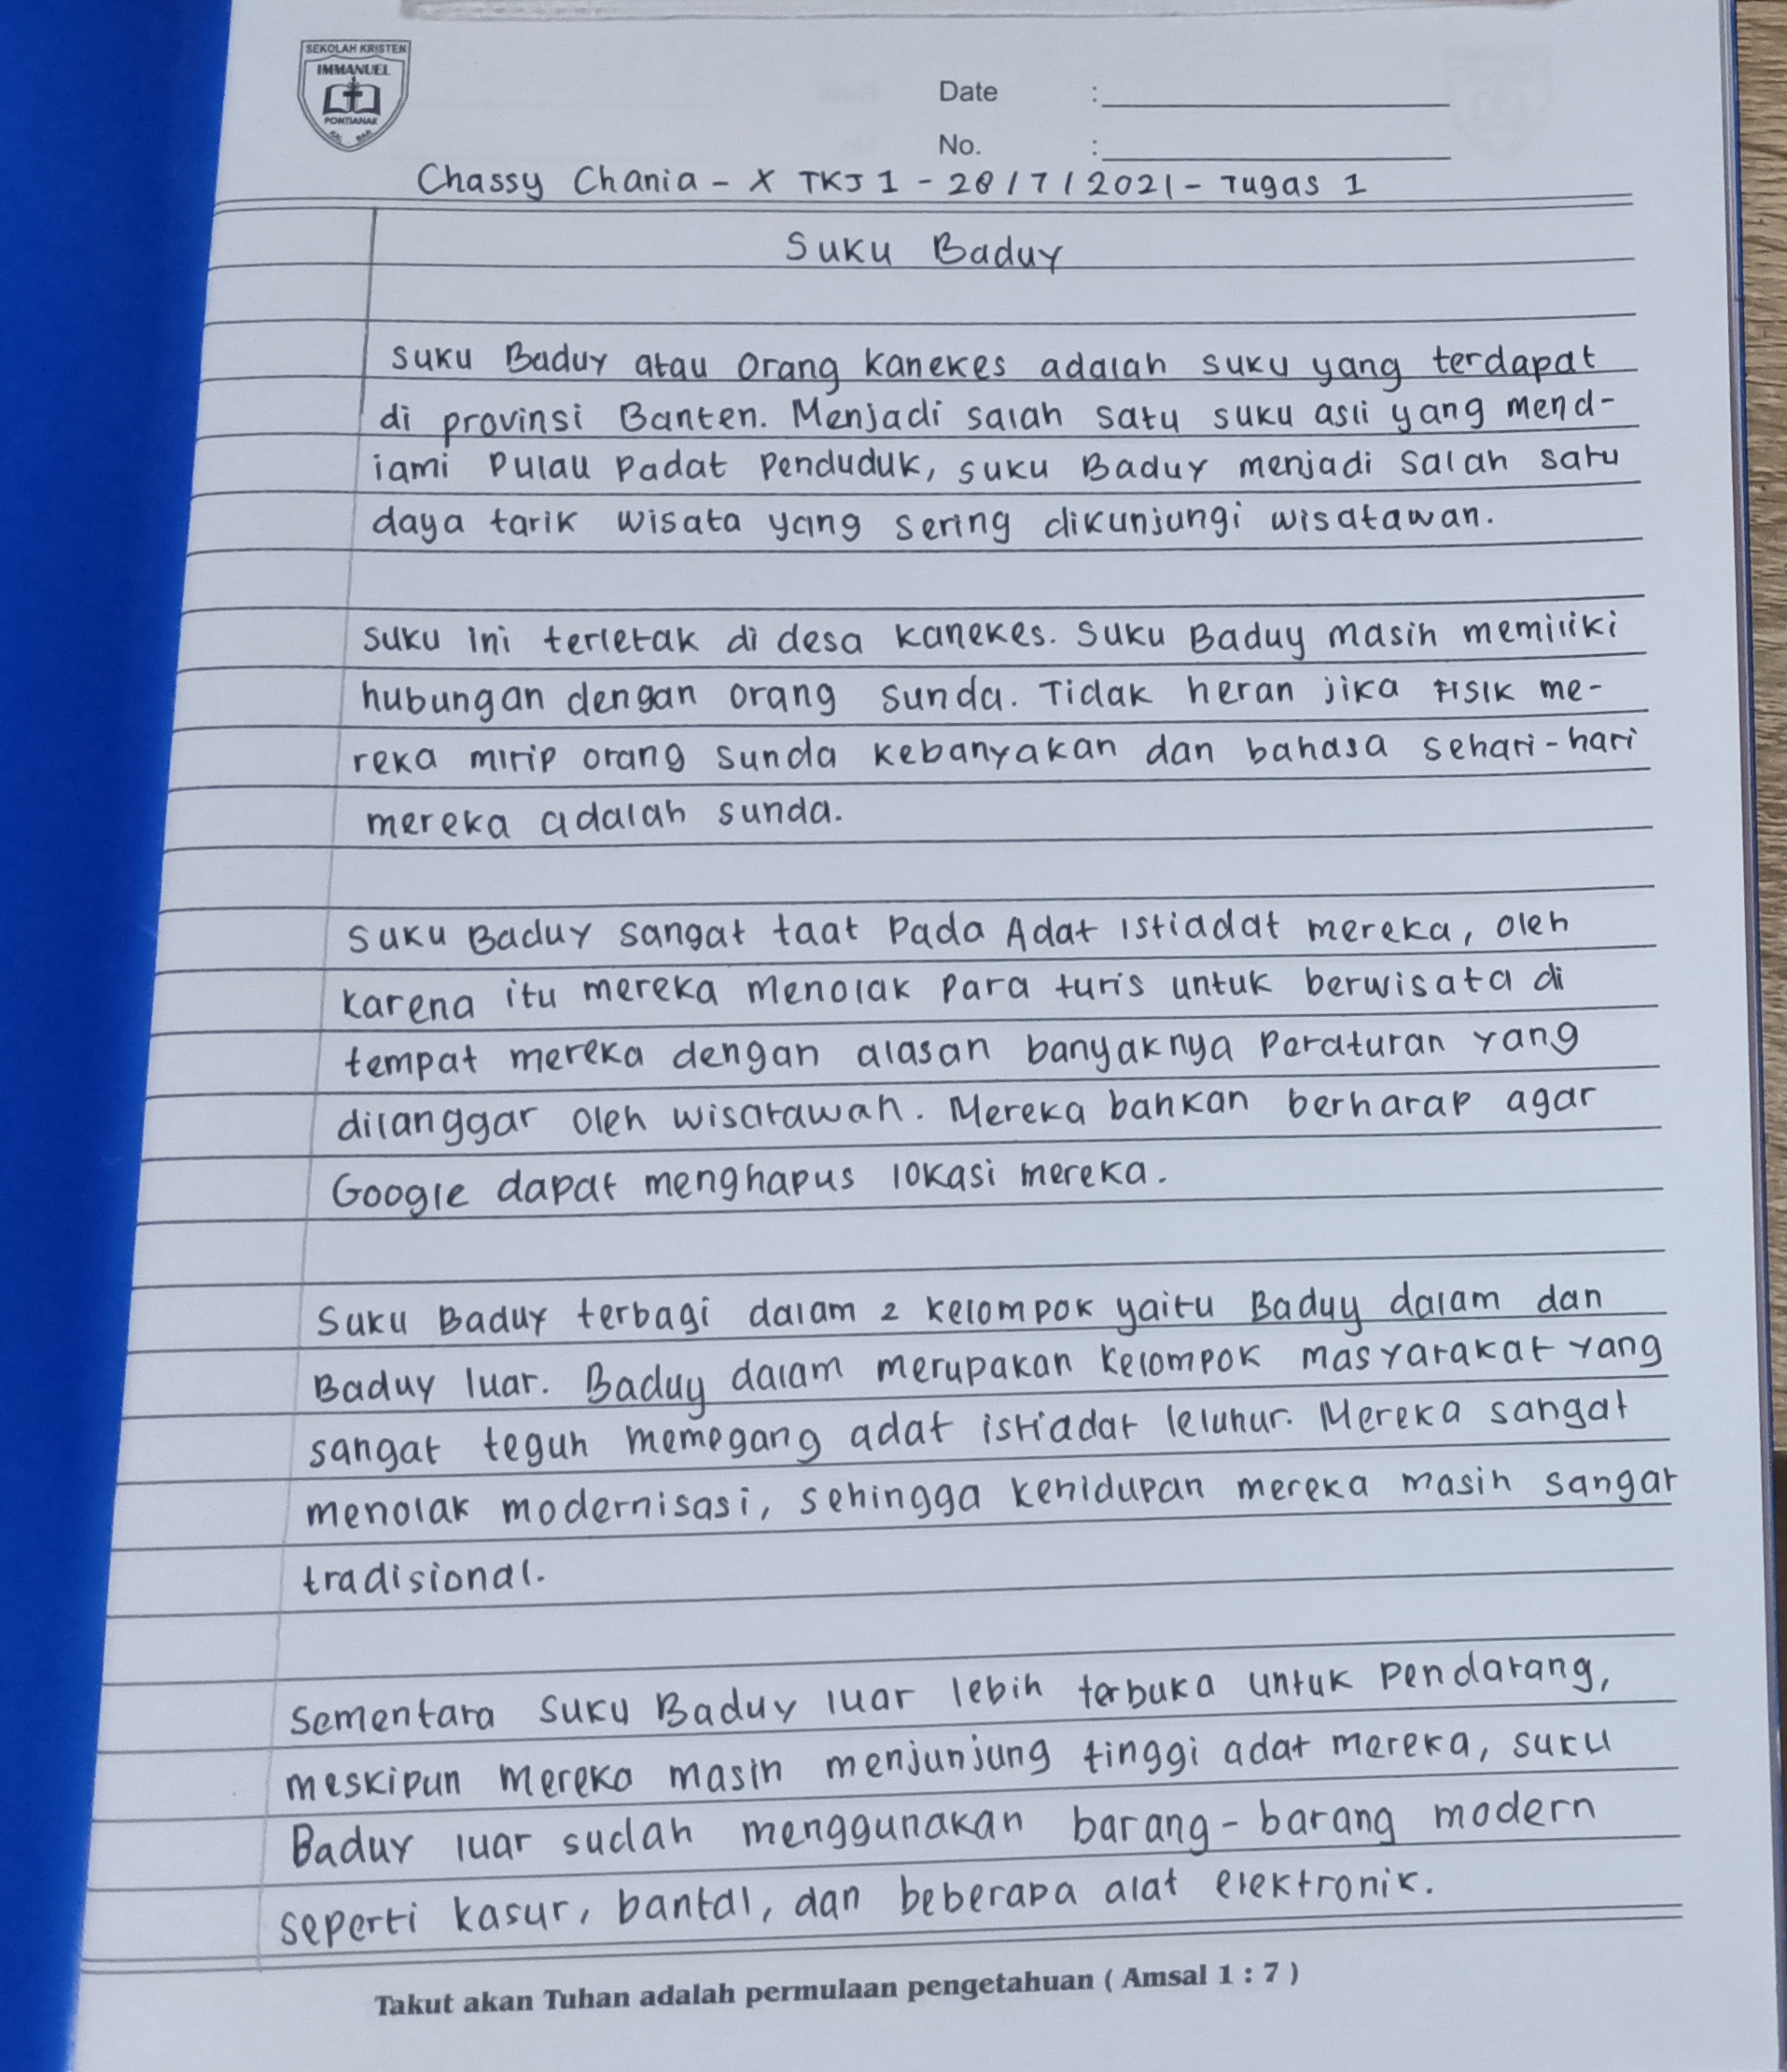 SEKOLAH KRISTEN
IMMANUEL
PONTIANAK
KAL BAR
Date :
No. :
Chassy Chania - X TKJ 1 - 28/7/2021 - Tugas 1
Suku Baduy
Suku Baduy atau Orang Kanekes adalah suku yang terdapat
di provinsi Banten. Menjadi salah satu suku asli yang mend-
iami Pulau Padat Penduduk, suku Baduy menjadi salah satu
daya tarik wisata yang sering dikunjungi wisatawan.
Suku ini terletak di desa Kanekes. Suku Baduy masih memiliki
hubungan dengan orang sunda. Tidak heran jika Fisik me-
reka mirip orang sunda kebanyakan dan bahasa sehari-hari
mereka adalah sunda.
Suku Baduy sangat taat Pada Adat Istiadat mereka, oleh
karena itu mereka menolak para turis untuk berwisata di
tempat mereka dengan alasan banyaknya Peraturan yang
dilanggar oleh wisatawan. Mereka bahkan berharap agar
Google dapat menghapus lokasi mereka.
Suku Baduy terbagi dalam 2 kelompok yaitu Baduy dalam dan
Baduy luar. Baduy dalam merupakan kelompok masyarakat yang
sangat teguh memegang adat istiadat leluhur. Mereka sangat
menolak modernisasi, sehingga kehidupan mereka masih sangat
tradisional.
Sementara Suku Baduy luar lebih terbuka untuk pendatang,
meskipun mereka masih menjunjung tinggi adat mereka, suku
Baduy luar sudah menggunakan barang-barang modern
seperti kasur, bantal, dan beberapa alat elektronik.
Takut akan Tuhan adalah permulaan pengetahuan ( Amsal 1 : 7 )